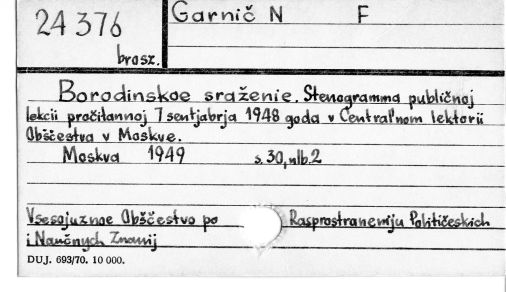 24376
brosz.
Garnič N F
Borodinskoe sraženie. Stenogramma publičnoj
lekcii pročitannoj 7 sentjabrja 1948 goda v Central'nom lektorii
Obščestva v Moskve.
Moskva 1949 s. 30, nlb. 2
Vsesojuznoe Obščestvo po Rasprostraneniju Političeskich
i Naučnych Znanij
DUJ. 693/70. 10 000.